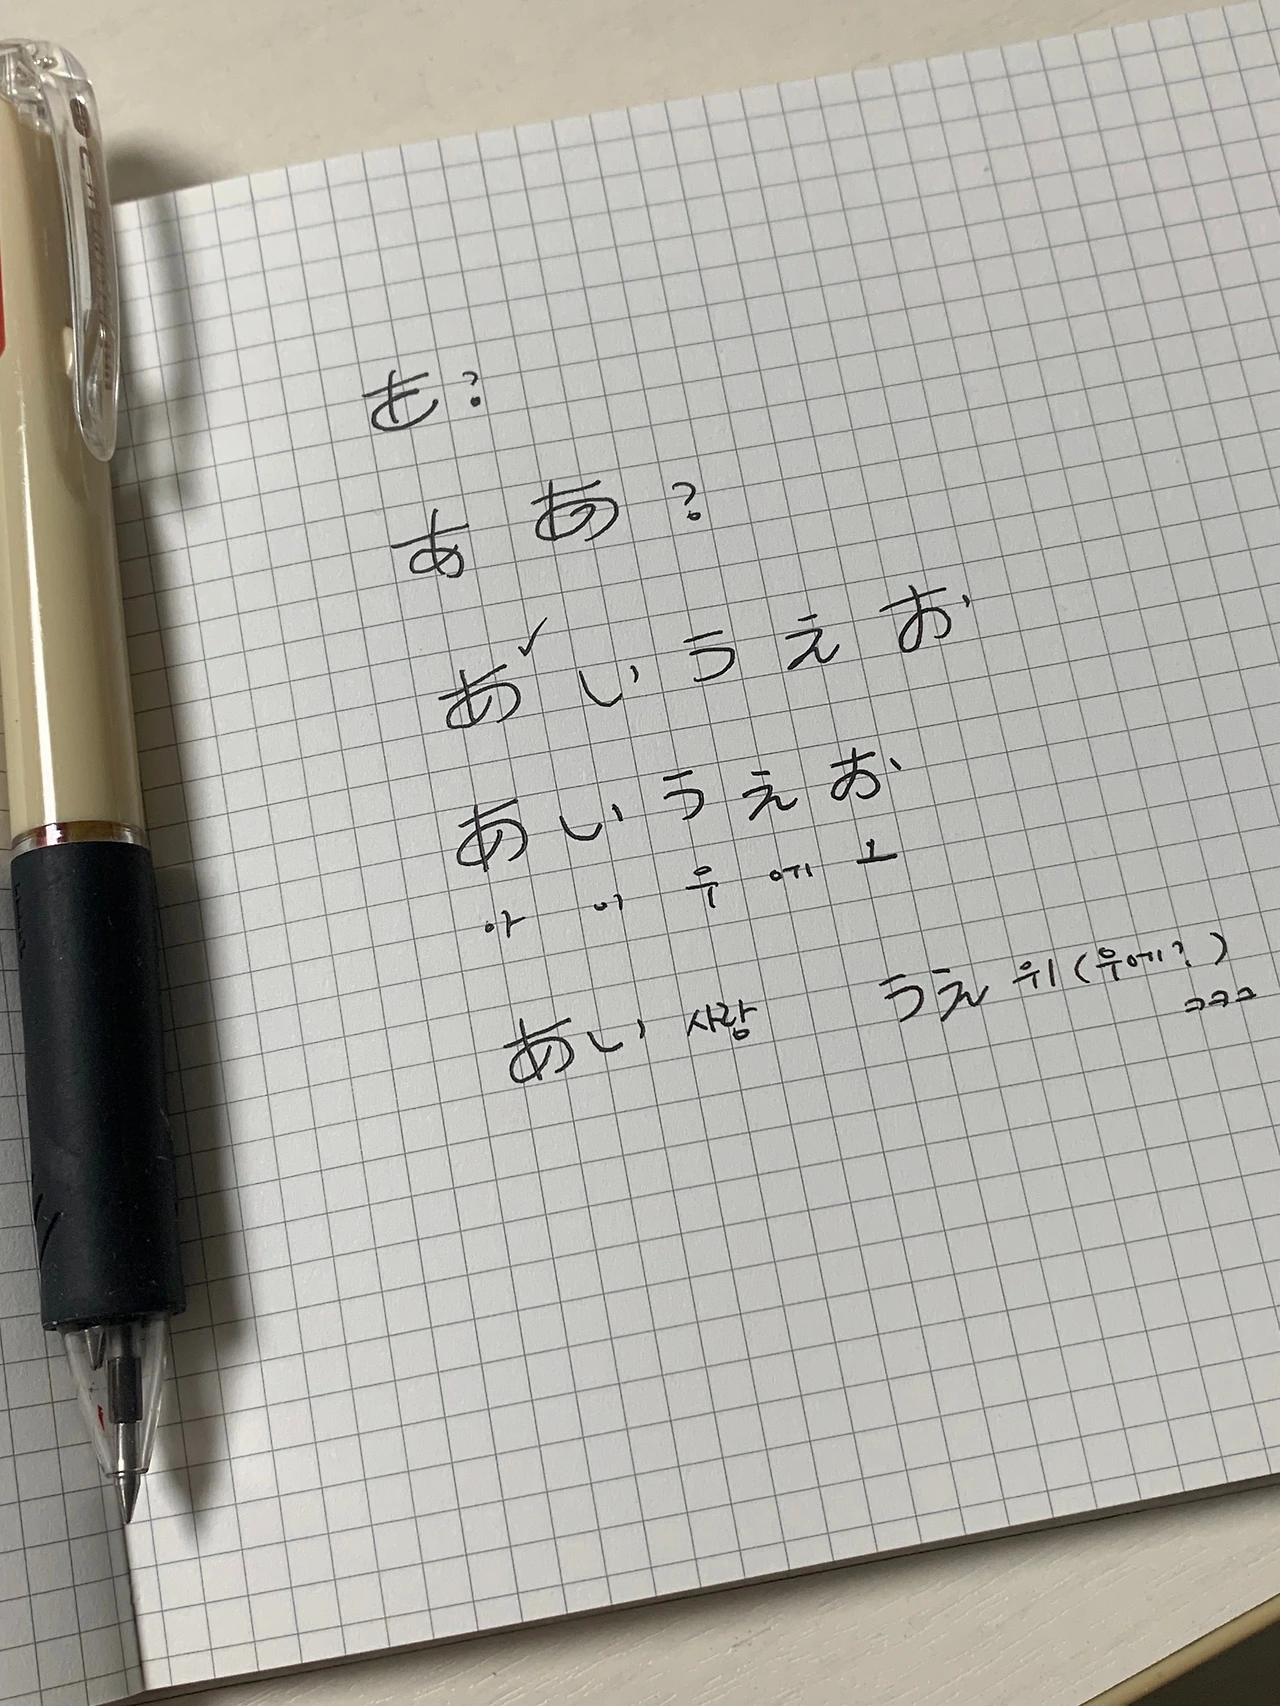 も?
あ あ ?
あ✓ い う え お
あ い う え お
아 이 우 에 ㅗ
あい 사랑 うえ 위(우에?)
ㅋㅋㅋ